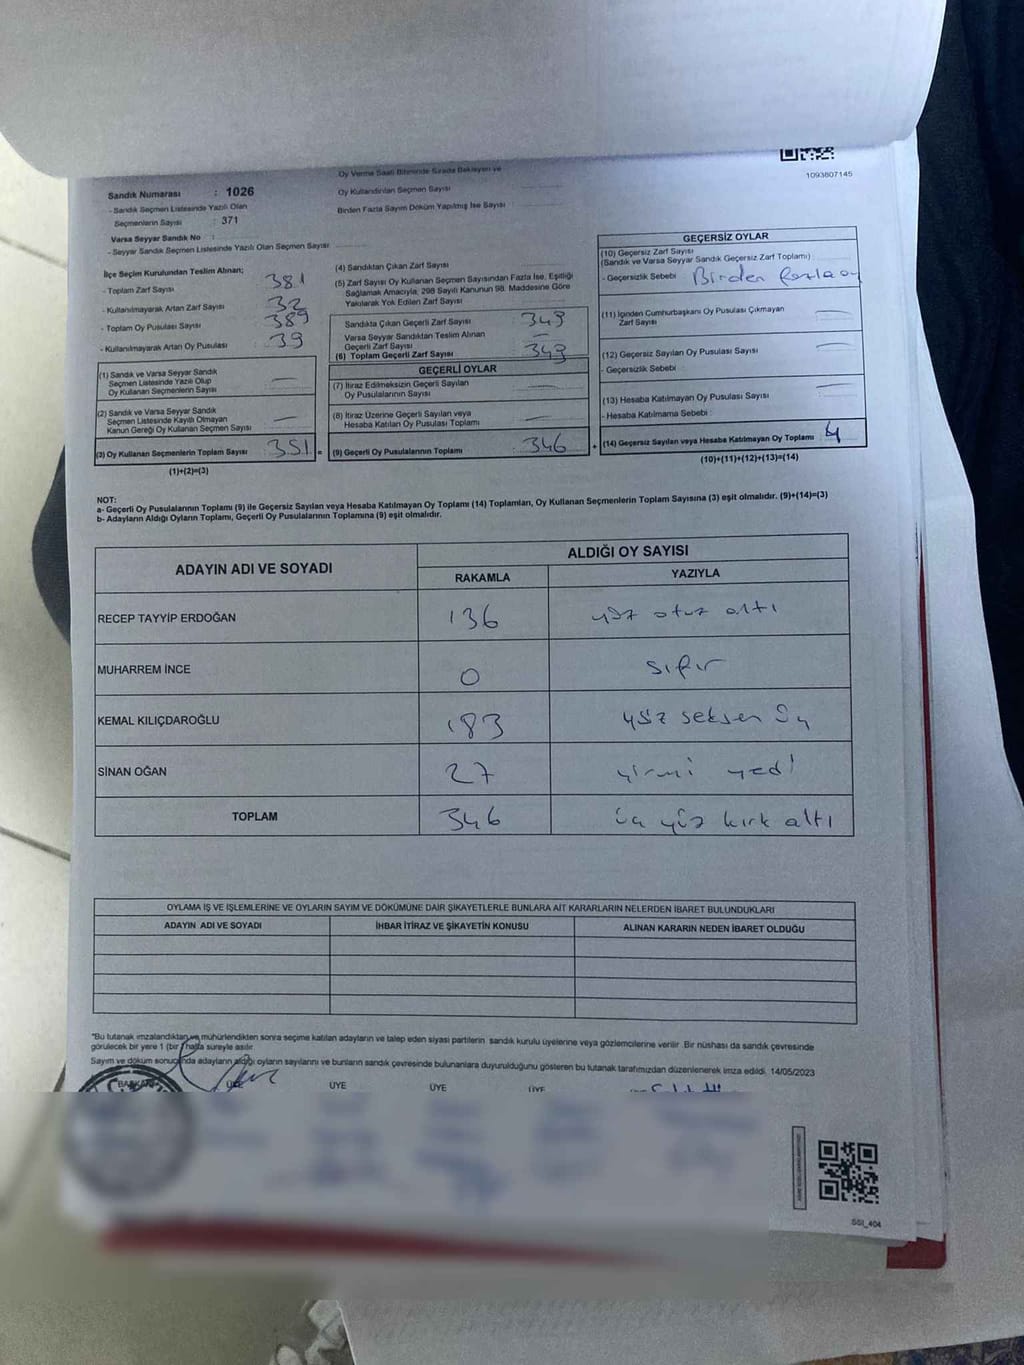 1093807145
Oy Verme Saati Bitiminde Sırada Bekleyen ve
Oy Kullandırılan Seçmen Sayısı
Birden Fazla Sayım Döküm Yapılmış İse Sayısı :
Sandık Numarası : 1026
- Sandık Seçmen Listesinde Yazılı Olan
Seçmenlerin Sayısı : 371
Varsa Seyyar Sandık No :
- Seyyar Sandık Seçmen Listesinde Yazılı Olan Seçmen Sayısı
İlçe Seçim Kurulundan Teslim Alınan;
- Toplam Zarf Sayısı : 381
- Kullanılmayarak Artan Zarf Sayısı : 32
- Toplam Oy Pusulası Sayısı : 389
- Kullanılmayarak Artan Oy Pusulası : 39
(1) Sandık ve Varsa Seyyar Sandık
Seçmen Listesinde Yazılı Olup
Oy Kullanan Seçmenlerin Sayısı
(2) Sandık ve Varsa Seyyar Sandık
Seçmen Listesinde Kayıtlı Olmayan
Kanun Gereği Oy Kullanan Seçmen Sayısı
(3) Oy Kullanan Seçmenlerin Toplam Sayısı 351 =
(1)+(2)=(3)
(4) Sandıktan Çıkan Zarf Sayısı
(5) Zarf Sayısı Oy Kullanan Seçmen Sayısından Fazla İse, Eşitliği
Sağlamak Amacıyla; 298 Sayılı Kanunun 98. Maddesine Göre
Yakılarak Yok Edilen Zarf Sayısı
Sandıkta Çıkan Geçerli Zarf Sayısı 349
Varsa Seyyar Sandıktan Teslim Alınan
Geçerli Zarf Sayısı
(6) Toplam Geçerli Zarf Sayısı 349
GEÇERLİ OYLAR
(7) İtiraz Edilmeksizin Geçerli Sayılan
Oy Pusulalarının Sayısı
(8) İtiraz Üzerine Geçerli Sayılan veya
Hesaba Katılan Oy Pusulası Toplamı
(9) Geçerli Oy Pusulalarının Toplamı 346 +
GEÇERSİZ OYLAR
(10) Geçersiz Zarf Sayısı
(Sandık ve Varsa Seyyar Sandık Geçersiz Zarf Toplamı) :
- Geçersizlik Sebebi Birden fazla oy
(11) İçinden Cumhurbaşkanı Oy Pusulası Çıkmayan
Zarf Sayısı
(12) Geçersiz Sayılan Oy Pusulası Sayısı
- Geçersizlik Sebebi :
(13) Hesaba Katılmayan Oy Pusulası Sayısı
- Hesaba Katılmama Sebebi :
(14) Geçersiz Sayılan veya Hesaba Katılmayan Oy Toplamı 4
(10)+(11)+(12)+(13)=(14)
NOT:
a- Geçerli Oy Pusulalarının Toplamı (9) ile Geçersiz Sayılan veya Hesaba Katılmayan Oy Toplamı (14) Toplamları, Oy Kullanan Seçmenlerin Toplam Sayısına (3) eşit olmalıdır. (9)+(14)=(3)
b- Adayların Aldığı Oyların Toplamı, Geçerli Oy Pusulalarının Toplamına (9) eşit olmalıdır.
ADAYIN ADI VE SOYADI ALDIĞI OY SAYISI
RAKAMLA YAZIYLA
RECEP TAYYİP ERDOĞAN 136 yüz otuz altı
MUHARREM İNCE 0 sıfır
KEMAL KILIÇDAROĞLU 183 yüz seksen üç
SİNAN OĞAN 27 yirmi yedi
TOPLAM 346 üç yüz kırk altı
OYLAMA İŞ VE İŞLEMLERİNE VE OYLARIN SAYIM VE DÖKÜMÜNE DAİR ŞİKAYETLERLE BUNLARA AİT KARARLARIN NELERDEN İBARET BULUNDUKLARI
ADAYIN ADI VE SOYADI İHBAR İTİRAZ VE ŞİKAYETİN KONUSU ALINAN KARARIN NEDEN İBARET OLDUĞU
"Bu tutanak imzalandıktan ve mühürlendikten sonra seçime katılan adayların ve talep eden siyasi partilerin sandık kurulu üyelerine veya gözlemcilerine verilir. Bir nüshası da sandık çevresinde
görülecek bir yere 1 (bir) hafta süreyle asılır.
Sayım ve döküm sonucunda adayların aldığı oyların sayılarını ve bunların sandık çevresinde bulunanlara duyurulduğunu gösteren bu tutanak tarafımızdan düzenlenerek imza edildi. 14/05/2023
BAŞKAN ÜYE ÜYE ÜYE ÜYE
SSI_404